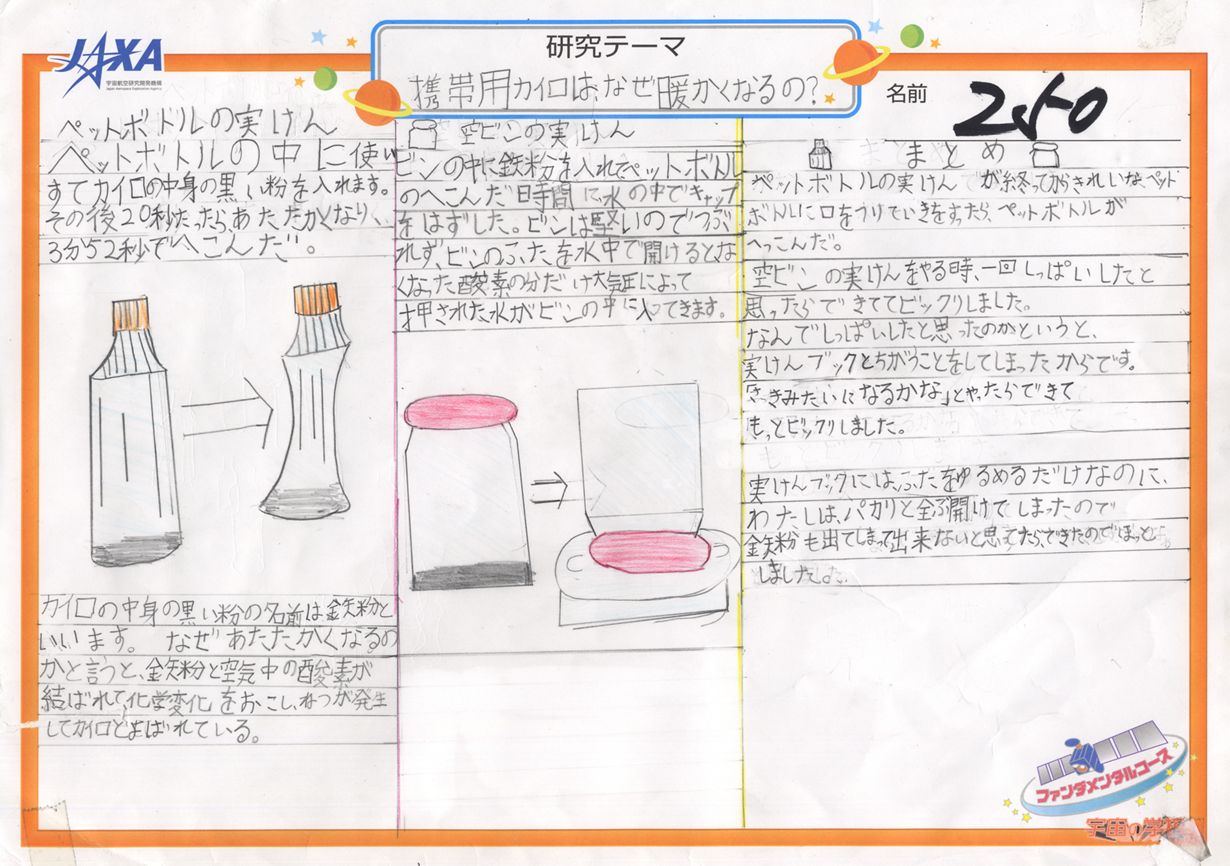 JAXA
宇宙航空研究開発機構
Japan Aerospace Exploration Agency
研究テーマ
携帯用カイロは、なぜ暖かくなるの?
名前
250
ペットボトルの実けん
ペットボトルの中に使い
すてカイロの中身の黒い粉を入れます。
その後20秒たったら、あたたかくなりく、
3分52秒でへこんだ。
カイロの中身の黒い粉の名前は鉄粉と
いいます。なぜあたたかくなるの
かと言うと、鉄粉と空気中の酸素が
結ばれて、化学変化をおこし、ねつが発生
してカイロとよばれている。
空ビンの実けん
ビンの中に鉄粉を入れてペットボトル
のへこんだ時間に水の中でキャップ
をはずした。ビンは堅いのでつぶ
れず、ビンのふたを水中で開けるとな
くなった酸素の分だけ大気圧によって
押された水がビンの中に入ってきます。
まとめ
ペットボトルの実けんが終ってからきれいなペット
ボトルに口をつけていきをすったら、ペットボトルが
へっこんだ。
空ビンの実けんをやる時、一回しっぱいしたと
思ったらできててビックリしました。
なんでしっぱいしたと思ったのかというと、
実けんブックとちがうことをしてしまったからです。
「さっきみたいになるかな」とやったらできて
もっとビックリしました。
実けんブックには、ふたをゆるめるだけなのに、
わたしは、パカリと全ぶ開けてしまったので
鉄粉も出てしまって出来ないと思ってたらできたのでほっと
しました。
ファンダメンタルコース
宇宙の学校